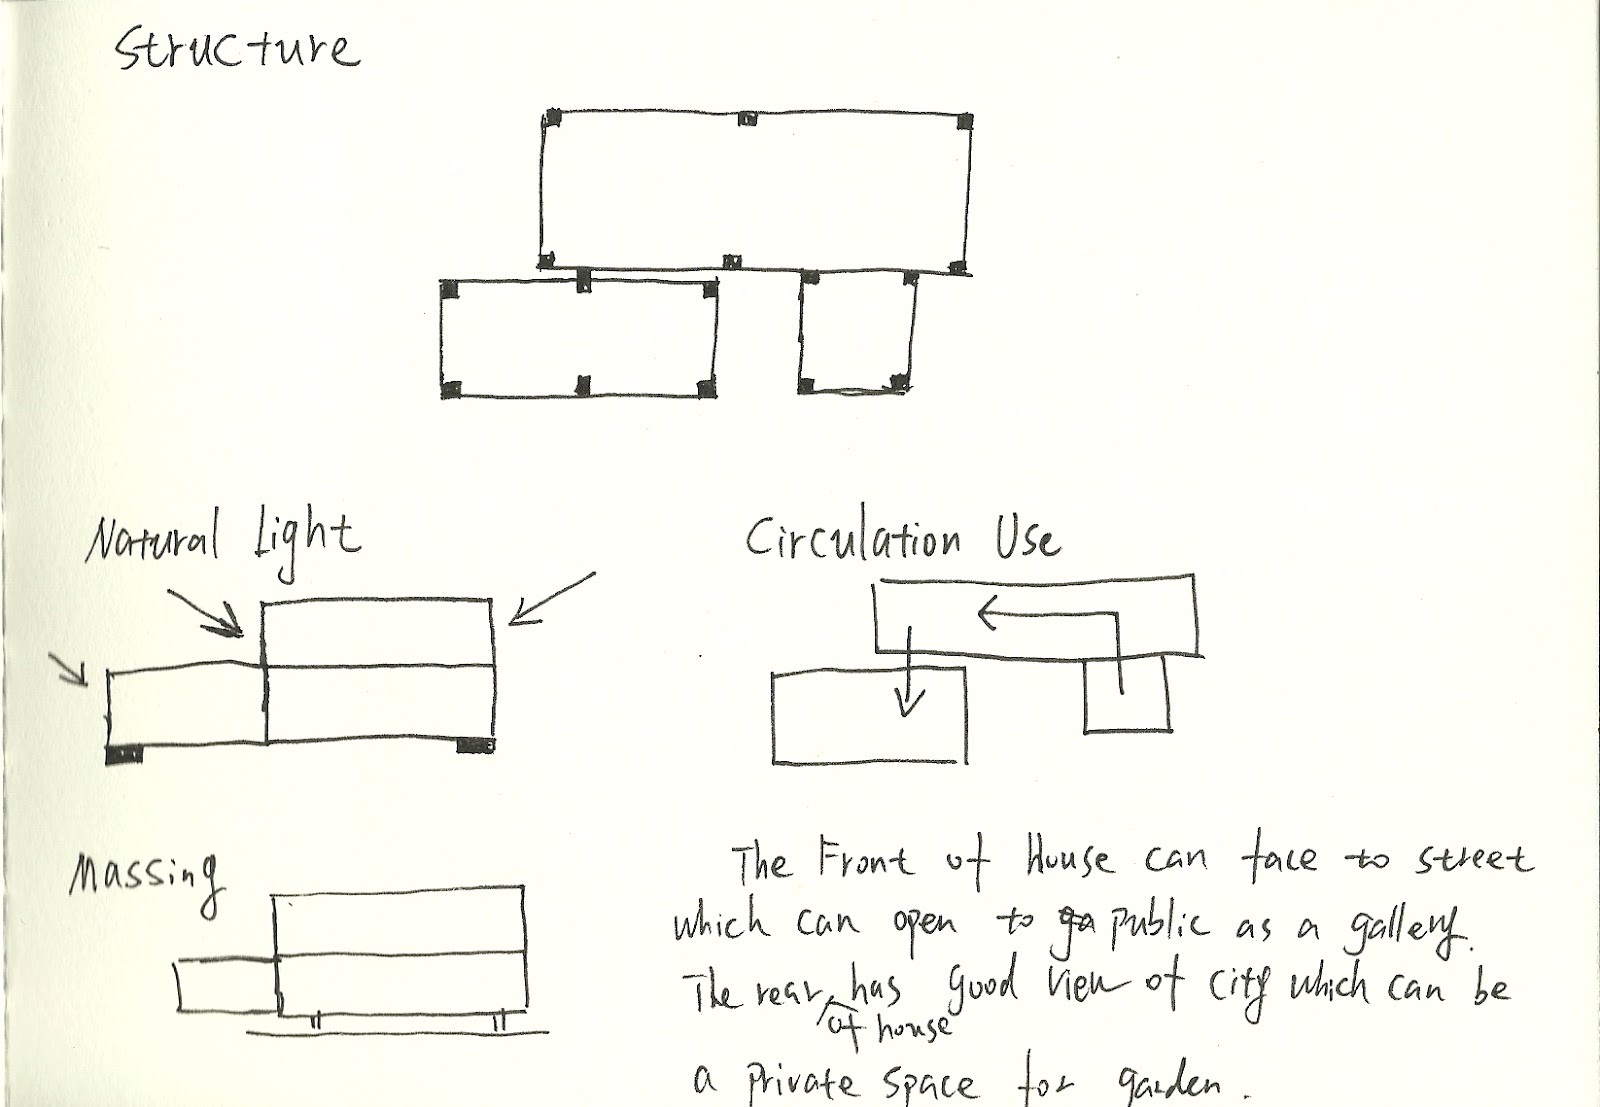 Structure
Natural Light
Circulation Use
Massing
The Front of House can face to street
which can open to ga public as a gallery.
The rear has good view of city which can be
of house
a private space for garden.